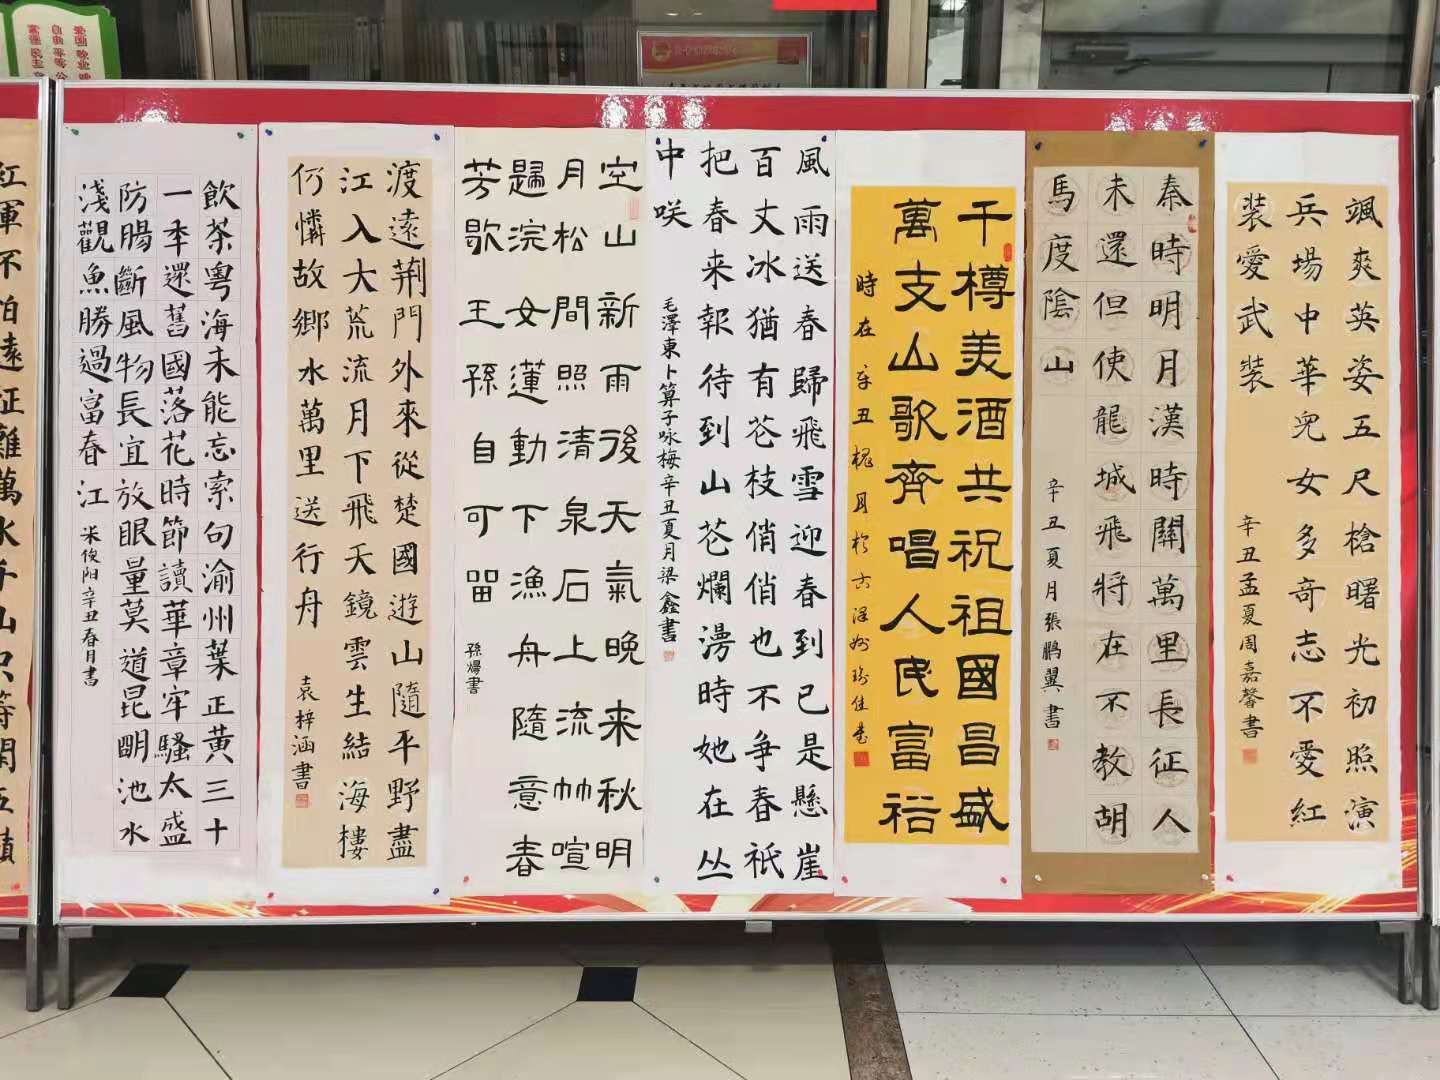 颯爽英姿五尺槍曙光初照演
兵場中華兒女多奇志不愛紅
裝愛武裝
辛丑孟夏周嘉馨書
秦時明月漢時關萬里長征人
未還但使龍城飛將在不教胡
馬度陰山
辛丑夏月張鵬翼書
千樽美酒共祝祖國昌盛
萬支山歌齊唱人民富裕
時在辛丑槐月於古澤州佳書
風雨送春歸飛雪迎春到已是懸崖
百丈冰猶有花枝俏俏也不争春衹
把春来報待到山花爛漫時她在丛
中咲
毛澤東卜算子咏梅辛丑夏月梁鑫書
空山新雨後天氣晚来秋明
月松間照清泉石上流竹喧
歸浣女蓮動下漁舟隨意春
芳歇王孫自可留
孫煬書
渡遠荆門外來從楚國遊山隨平野盡
江入大荒流月下飛天鏡雲生結海樓
仍憐故鄉水萬里送行舟
袁梓涵書
飲茶粤海未能忘索句渝州葉正黄三十
一年還舊國落花時節讀華章牢騷太盛
防腸斷風物長宜放眼量莫道昆明池水
淺觀魚勝過富春江
柴俊阳辛丑春月書
紅軍不怕遠征難萬水千山只等閑五嶺
爱国 敬业
自由 平等 公
富强 民主